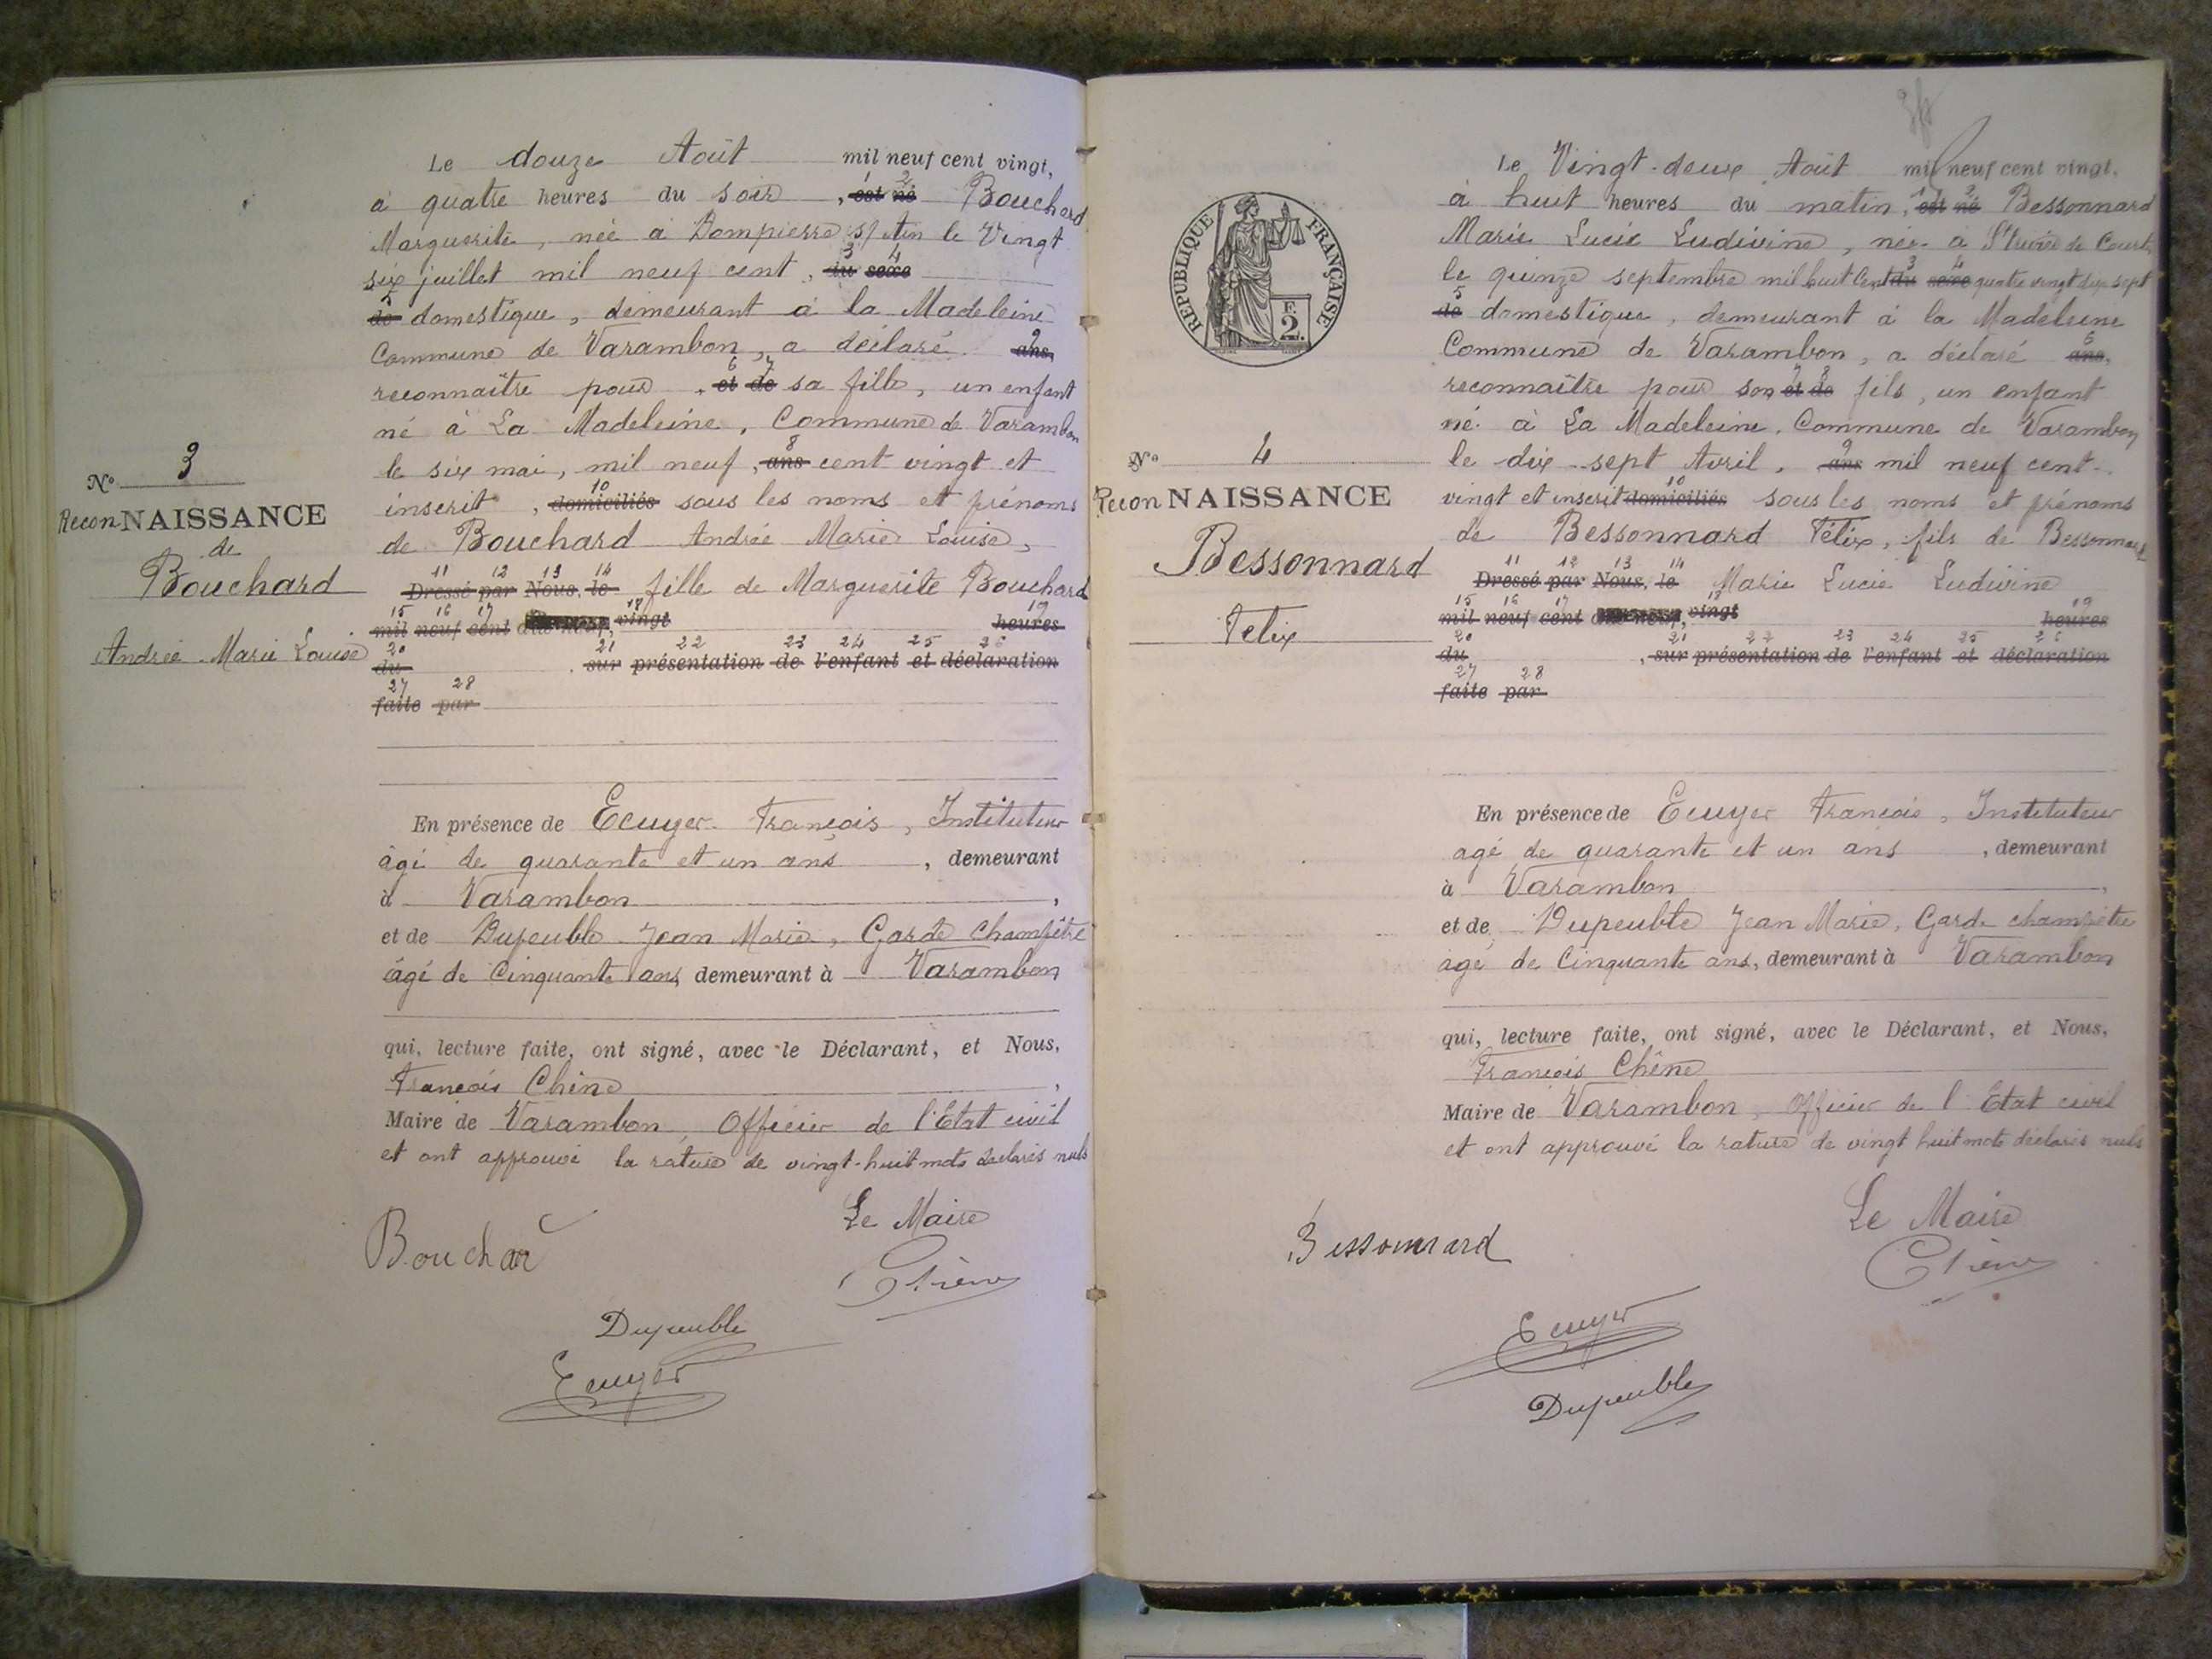 Le douze Août mil neuf cent vingt,
à quatre heures du soir, est né Bouchard
1 2
Marguerite, née à Dompierre s/ Ain le Vingt
six juillet mil neuf cent, du sexe
3 4
de domestique, demeurant à la Madeleine
5
Commune de Varambon, a déclaré ans,
9
reconnaitre pour, et de sa fille, un enfant
6 7
né à La Madeleine, Commune de Varambon
le six mai, mil neuf, ans cent vingt et
8
inscrit, domiciliés sous les noms et prénoms
10
de Bouchard Andrée Marie Louise,
Dressé par Nous, le fille de Marguerite Bouchard
11 12 13 14
mil neuf cent vingt heures
15 16 17 18 19
du, sur présentation de l'enfant et déclaration
20 21 22 23 24 25 26
faite par
27 28
No 3
Recon NAISSANCE
de
Bouchard
Andrée Marie Louise
En présence de Ecuyer François, Instituteur
âgé de quarante et un ans, demeurant
à Varambon,
et de Dupeuble Jean Marie, Garde Champêtre
âgé de Cinquante ans, demeurant à Varambon
qui, lecture faite, ont signé, avec le Déclarant, et Nous,
François Chêne,
Maire de Varambon, Officier de l'Etat civil
et ont approuvé la rature de vingt-huit mots déclarés nuls
Le Maire
Bouchar
Chêne
Dupeuble
Ecuyer
Le Vingt-deux Août mil neuf cent vingt,
à huit heures du matin, est né Bessonnard
1 2
Marie Lucie Ludivine, née à
le quinze septembre mil huit Cent du sexe quatre vingt dix sept
3 4
de domestique, demeurant à la Madeleine
5
Commune de Varambon, a déclaré ans,
6
reconnaître pour son et de fils, un enfant
7 8
né à La Madeleine, Commune de Varambon
le dix sept Avril, ans mil neuf cent
9
vingt et inscrit domiciliés sous les noms et prénoms
10
de Bessonnard Félix, fils de Bessonnard
Dressé par Nous, le Marie Lucie Ludivine
11 12 13 14
mil neuf cent vingt heures
15 16 17 18 19
du, sur présentation de l'enfant et déclaration
20 21 22 23 24 25 26
faite par
27 28
RÉPUBLIQUE FRANÇAISE
F.
2.
No 4
Recon NAISSANCE
Bessonnard
Felix
En présence de Ecuyer François, Instituteur
agé de quarante et un ans, demeurant
à Varambon,
et de Dupeuble Jean Marie, Garde champêtre
âgé de Cinquante ans, demeurant à Varambon
qui, lecture faite, ont signé, avec le Déclarant, et Nous,
François Chêne
Maire de Varambon, Officier de l'Etat civil
et ont approuvé la rature de vingt huit mots déclarés nuls
Le Maire
Bessonnard
Chêne
Ecuyer
Dupeuble